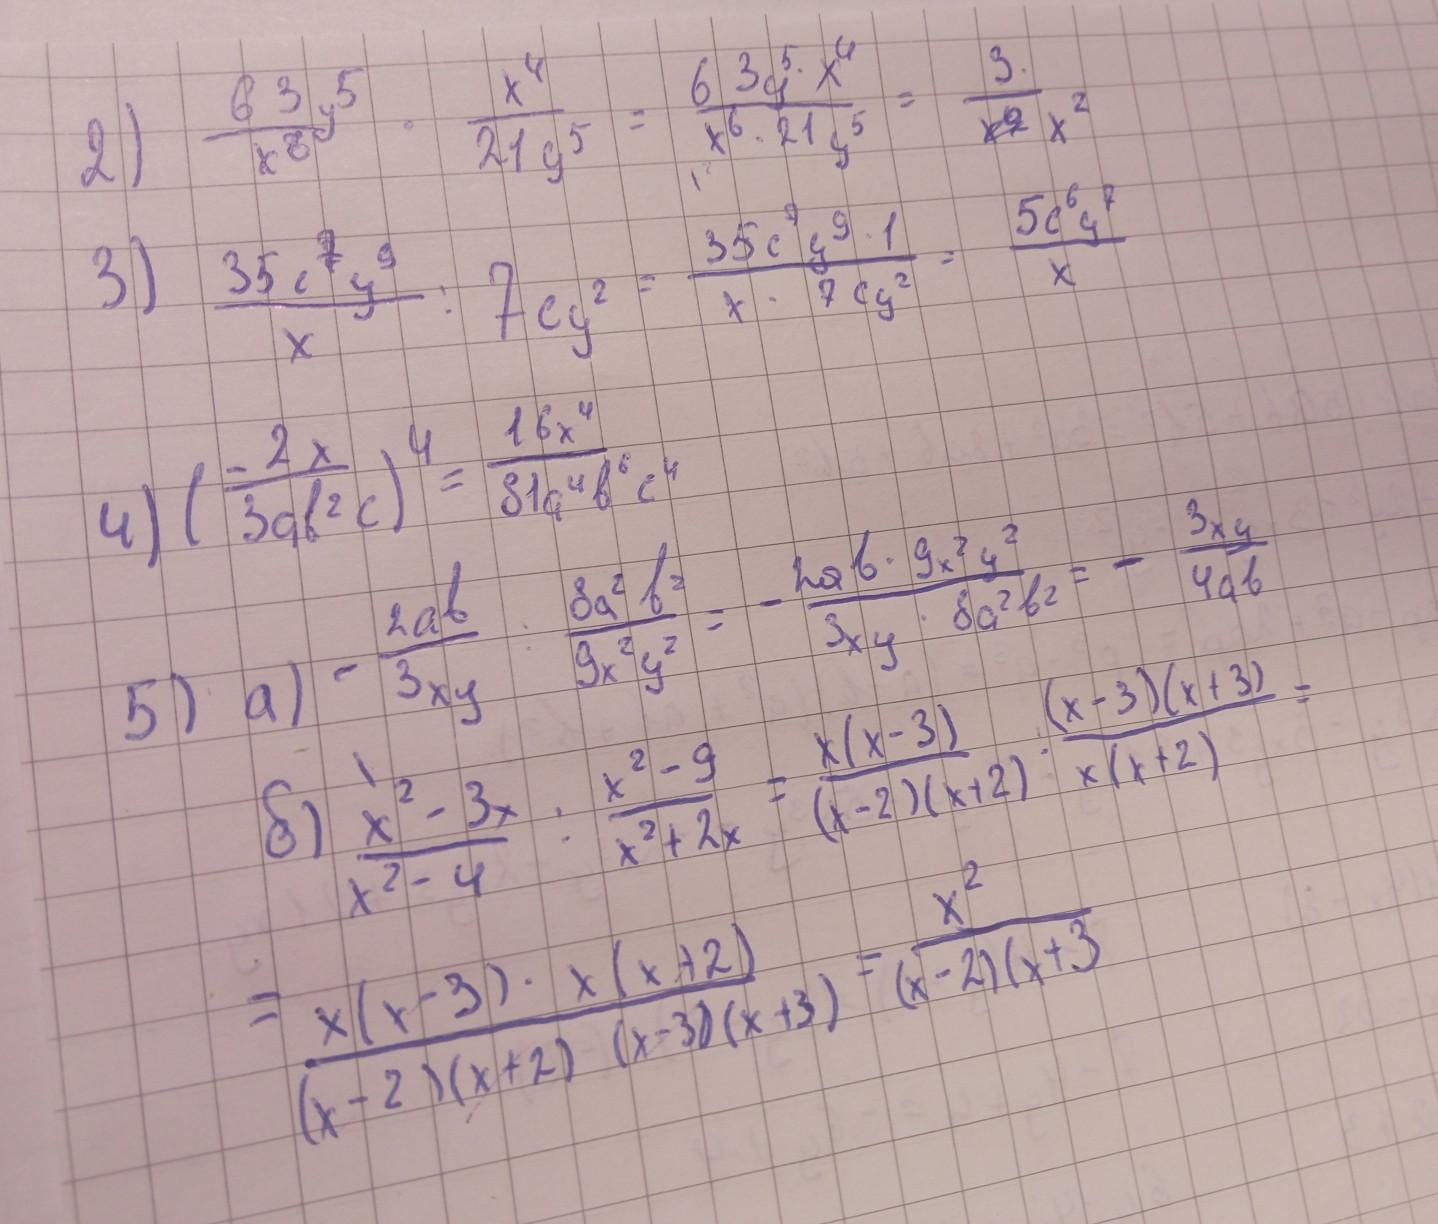 2) 63y⁵/x⁶ · x⁴/21y⁵ = 63y⁵·x⁴/x⁶·21y⁵ = 3/x²
3) 35c⁷y⁹/x : 7cy² = 35c⁷y⁹·1/x·7cy² = 5c⁶y⁷/x
4) (-2x/3ab²c)⁴ = 16x⁴/81a⁴b⁶c⁴
5) а) - 2ab/3xy : 8a²b²/9x²y² = - 2ab·9x²y²/3xy·8a²b² = - 3xy/4ab
б) x²-3x/x²-4 : x²-9/x²+2x = x(x-3)/(x-2)(x+2) : (x-3)(x+3)/x(x+2) =
= x(x-3)·x(x+2)/(x-2)(x+2)(x-3)(x+3) = x²/(x-2)(x+3